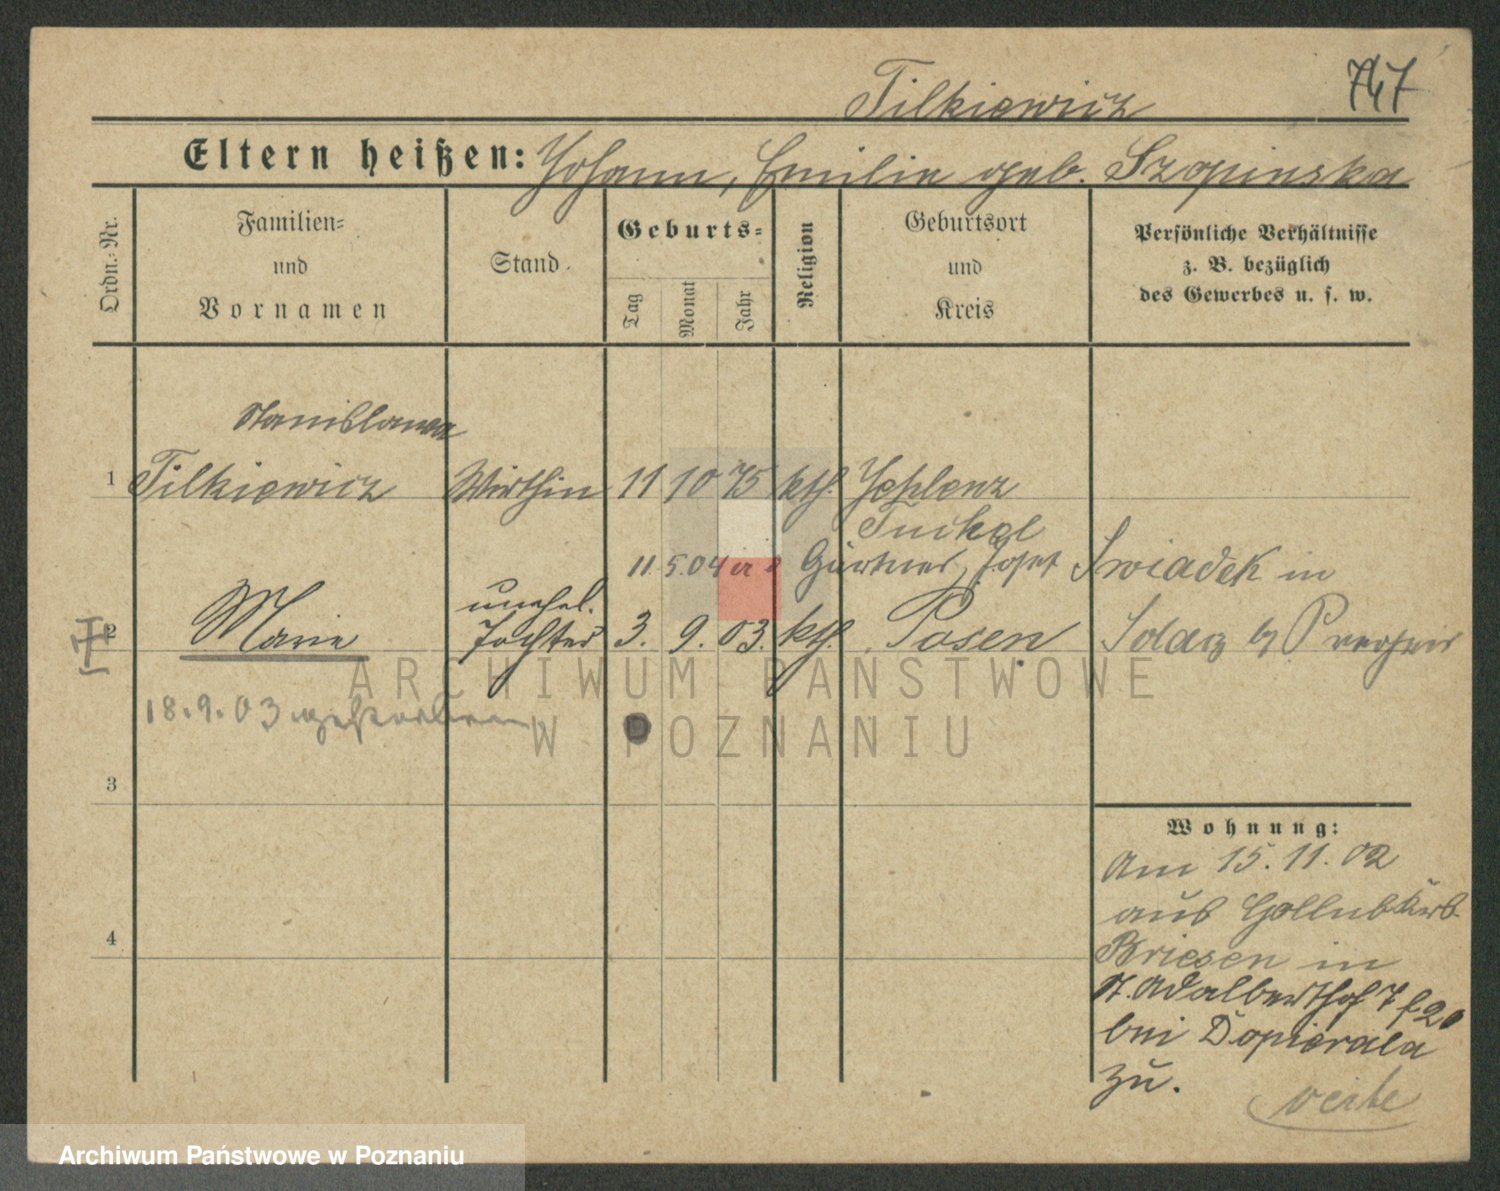 Tilkiewicz
747
Eltern heißen: Johann, Emilie geb. Szopinska
Ordn.-Nr.
Familien-
und
Vornamen
Stand.
Geburts-
Tag
Monat
Jahr
Religion
Geburtsort
und
Kreis
Persönliche Verhältnisse
z. B. bezüglich
des Gewerbes u. s. w.
Stanislawa
1 Tilkiewicz Wirthin 11 10 75 kth.
Tuchel
11.5.04 Gärtner, Josef Swiadek in
unehel.
2 Marie Tochter 3. 9. 03. kth. Posen
18.9.03 gestorben
3
4
Wohnung:
Am 15.11.02
aus Gollub
Briesen in
St. Adalberthof 7
bei Dopierala
zu.
ARCHIWUM PAŃSTWOWE
W POZNANIU
Archiwum Państwowe w Poznaniu